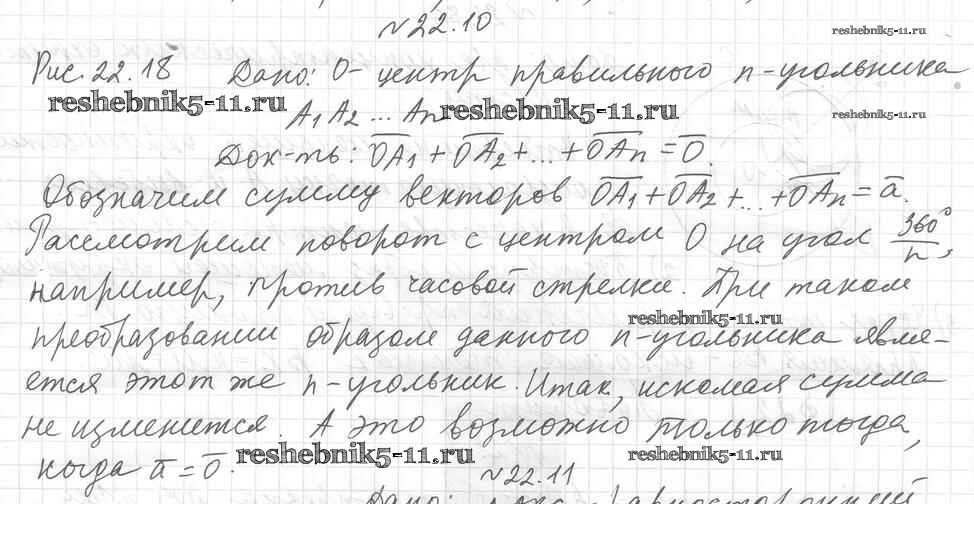 №22.10
reshebnik5-11.ru
Рис. 22.18 Дано: О- центр правильного n-угольника
reshebnik5-11.ru A₁A₂...Aₙ reshebnik5-11.ru reshebnik5-11.ru
Док-ть: O̅A̅₁ + O̅A̅₂ + ... + O̅A̅ₙ = 0̅.
Обозначим сумму векторов O̅A̅₁ + O̅A̅₂ + ... + O̅A̅ₙ = a̅.
Рассмотрим поворот с центром О на угол 360°/n,
например, против часовой стрелки. При таком
reshebnik5-11.ru
преобразовании образом данного n-угольника явля-
ется этот же n-угольник. Итак, искомая сумма
не изменится. А это возможно только тогда,
когда a̅ = 0̅. reshebnik5-11.ru reshebnik5-11.ru
№22.11
Дано: